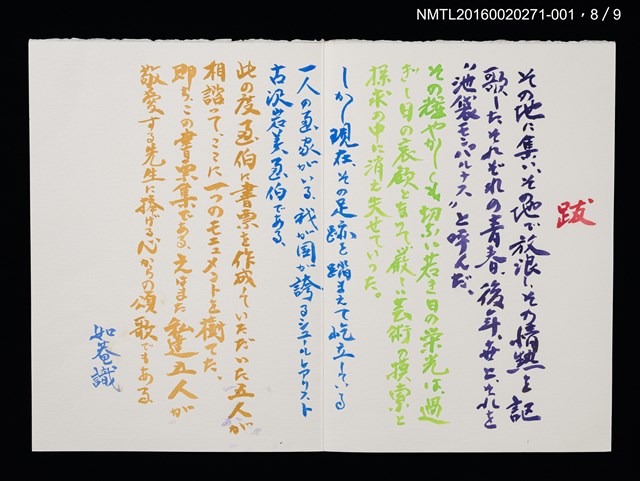 NMTL20160020271-001，8／9
跋
その地に集い、その地で放浪し、その情熱を記
歌した、それぞれの青春、後年、世上これを
“池袋モンパルナス”と呼んだ。
その輝やかしくも切ない若き日の栄光は、過
ぎし日の哀歓となって、厳しい芸術の模索と
探求の中に消え失せていった。
しかし現在、その足跡を踏まえて屹立している
一人の画家がいる、我が国が誇るシュールレアリスト
古沢岩美画伯である、
此の度画伯に書票を作成していただいた五人が
相諮って、ここに一つのモニュメントを樹てた、
即ち、この書票集である、えはまた私達五人が
敬愛する先生に捧げる心からの頌歌でもある、
如菴識